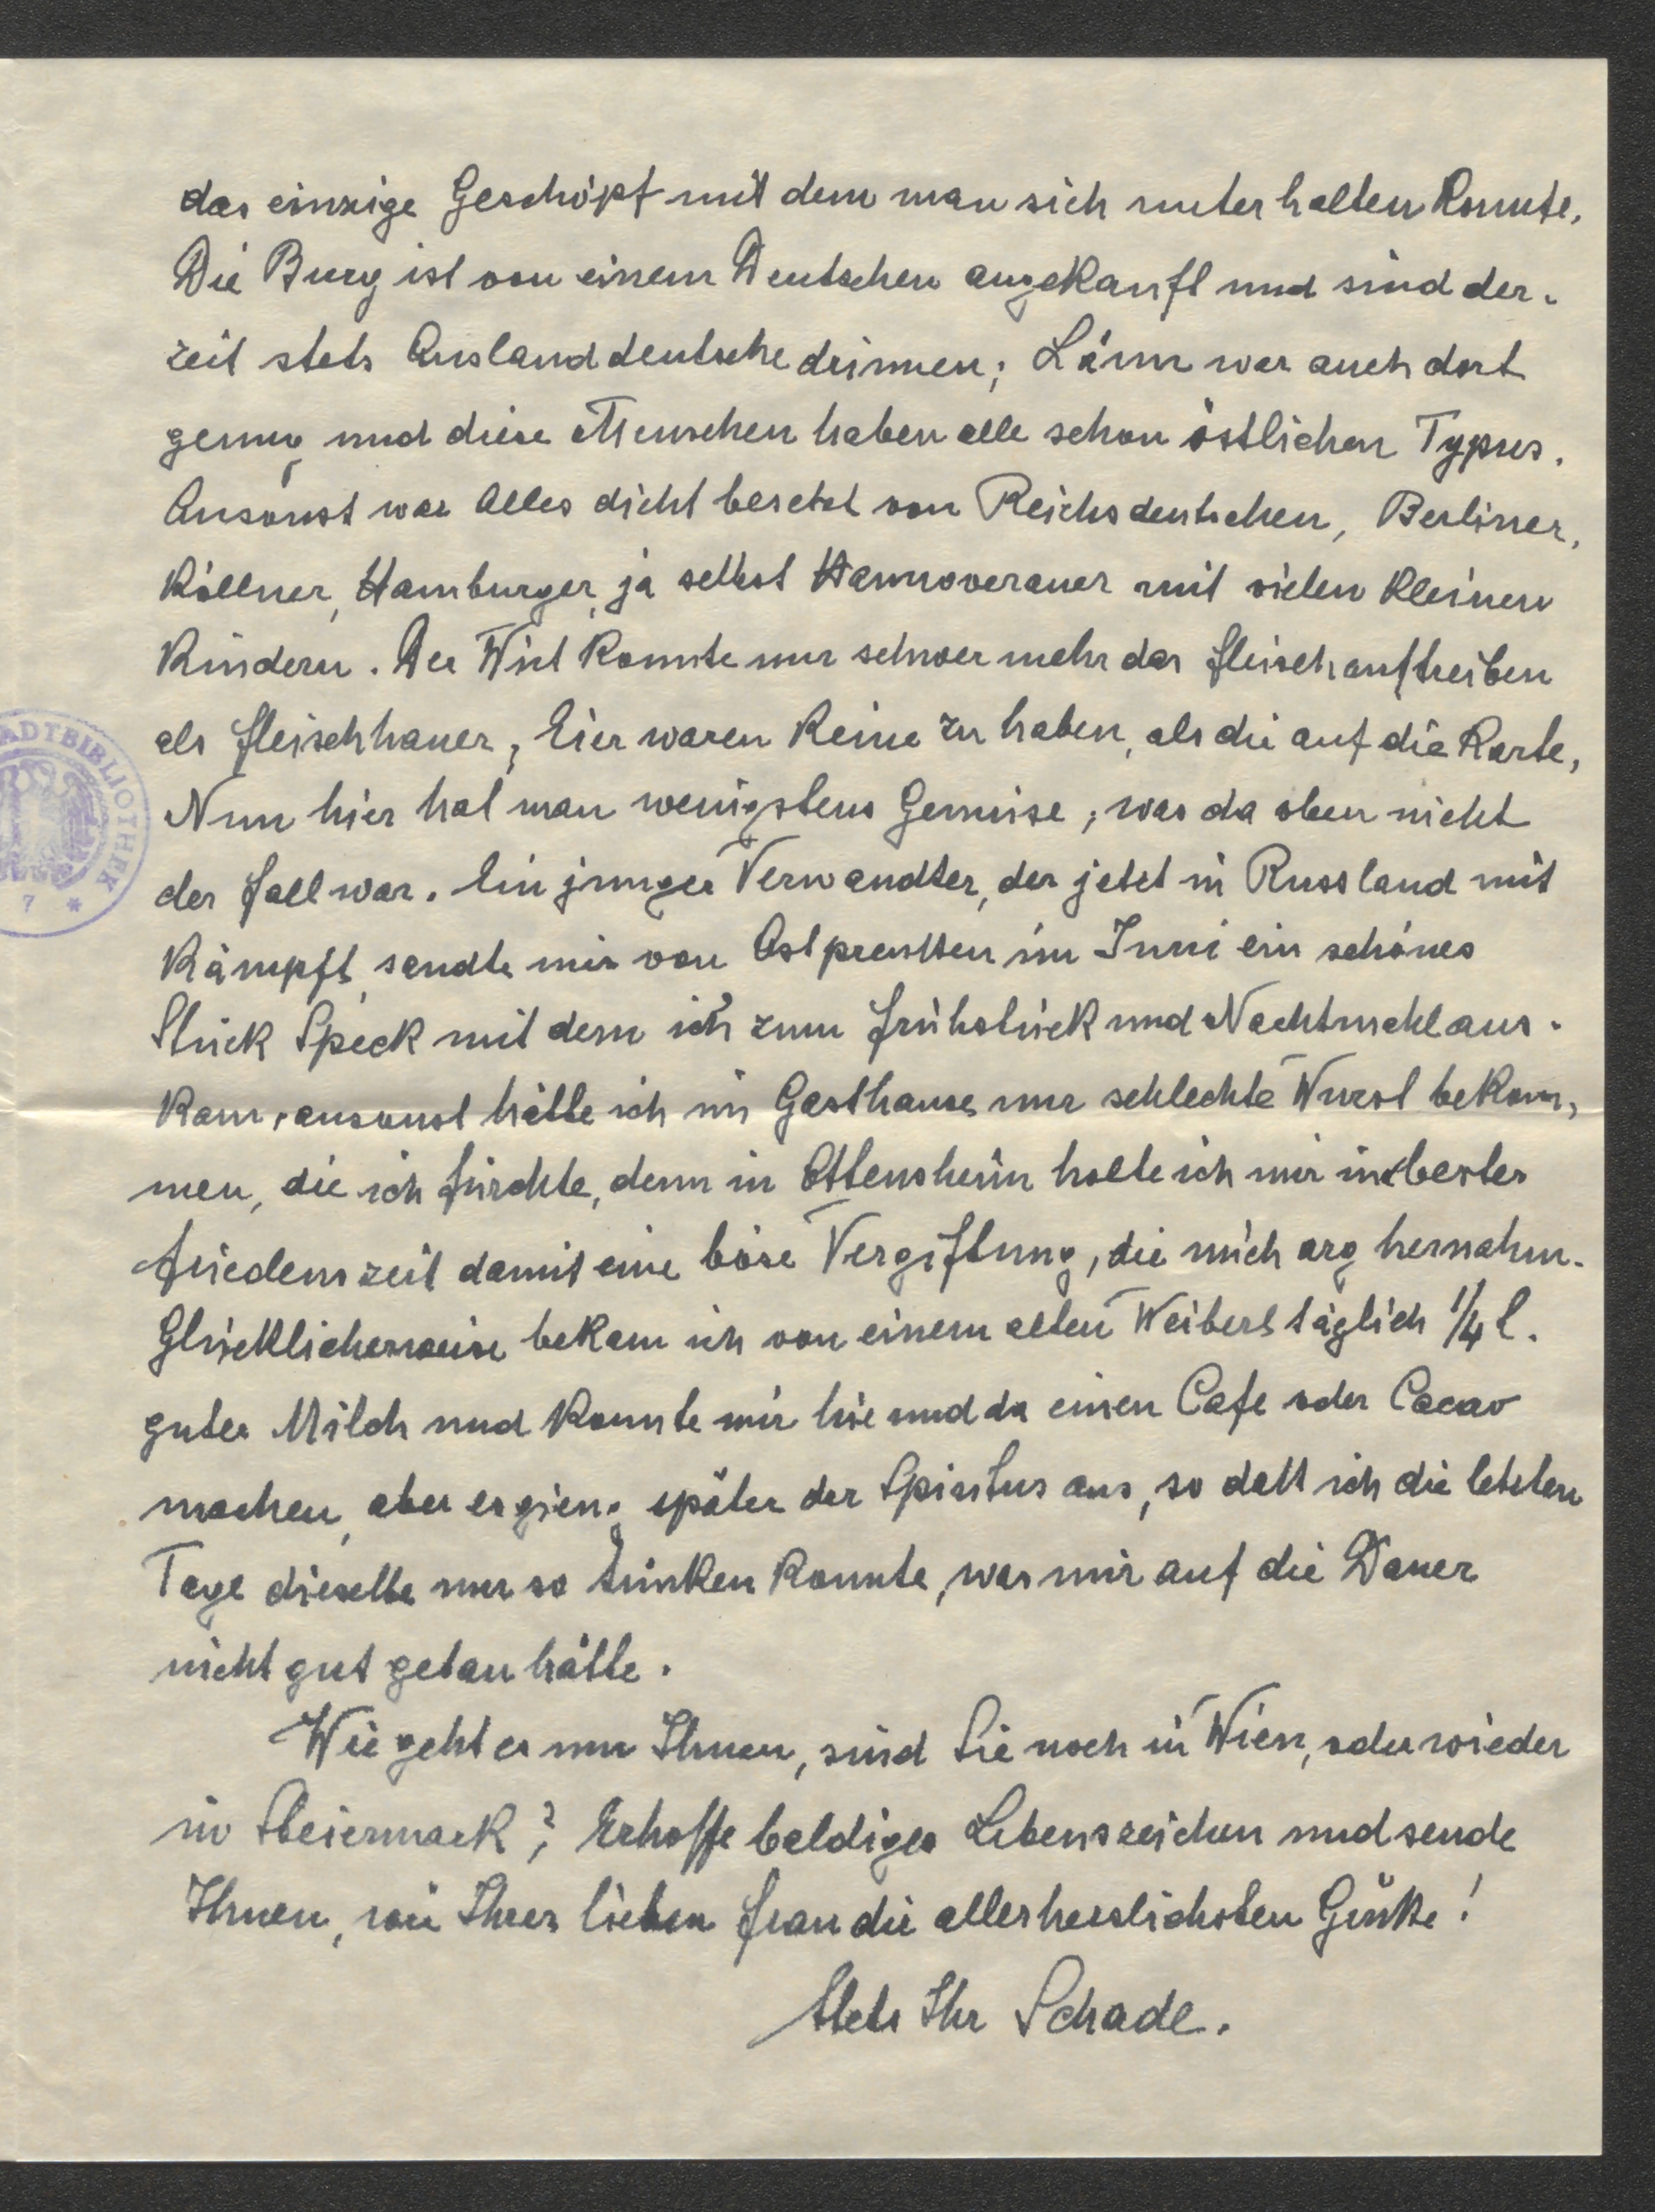 das einzige Geschöpf mit dem man sich unterhalten konnte.
Die Burg ist von einem Deutschen angekauft und sind der-
zeit stets Auslanddeutsche drinnen; Lärm war auch dort
genug und diese Menschen haben alle schon östlichen Typus.
Ansonst war Alles dicht besetzt von Reichsdeutschen, Berliner,
Köllner, Hamburger, ja selbst Hannoveraner mit vielen kleinen
Kindern. Der Wirt konnte nur schwer mehr das Fleisch auftreiben
als Fleischhauer, Eier waren keine zu haben, als die auf die Karte,
Nun hier hat man wenigstens Gemüse, was da oben nicht
der Fall war. Ein junger Verwandter, der jetzt in Russland mit
kämpft, sandte mir von Ostpreußen im Juni ein schönes
Stück Speck mit dem ich zum Frühstück und Nachtmahl aus-
kam, ansonst hätte ich im Gasthause nur schlechte Wurst bekom-
men, die ich fürchte, denn in Ottensheim holte ich mir in bester
Friedenszeit damit eine böse Vergiftung, die mich arg hernahm.
Glücklicherweise bekam ich von einem alten Weiberl täglich 1/4 l.
guter Milch und konnte mir hie und da einen Cafe oder Cacao
machen, aber es gieng später der Spiritus aus, so daß ich die letzten
Tage dieselbe nur so trinken konnte, was mir auf die Dauer
nicht gut getan hätte.
Wie geht es nun Ihnen, sind Sie noch in Wien, oder wieder
in Steiermark? Erhoffe baldiges Lebenszeichen und sende
Ihnen, wie Ihrer lieben Frau die allerherzlichsten Grüße!
Stets Ihr Schade.
ADTBIBLIOTHEK
7 *